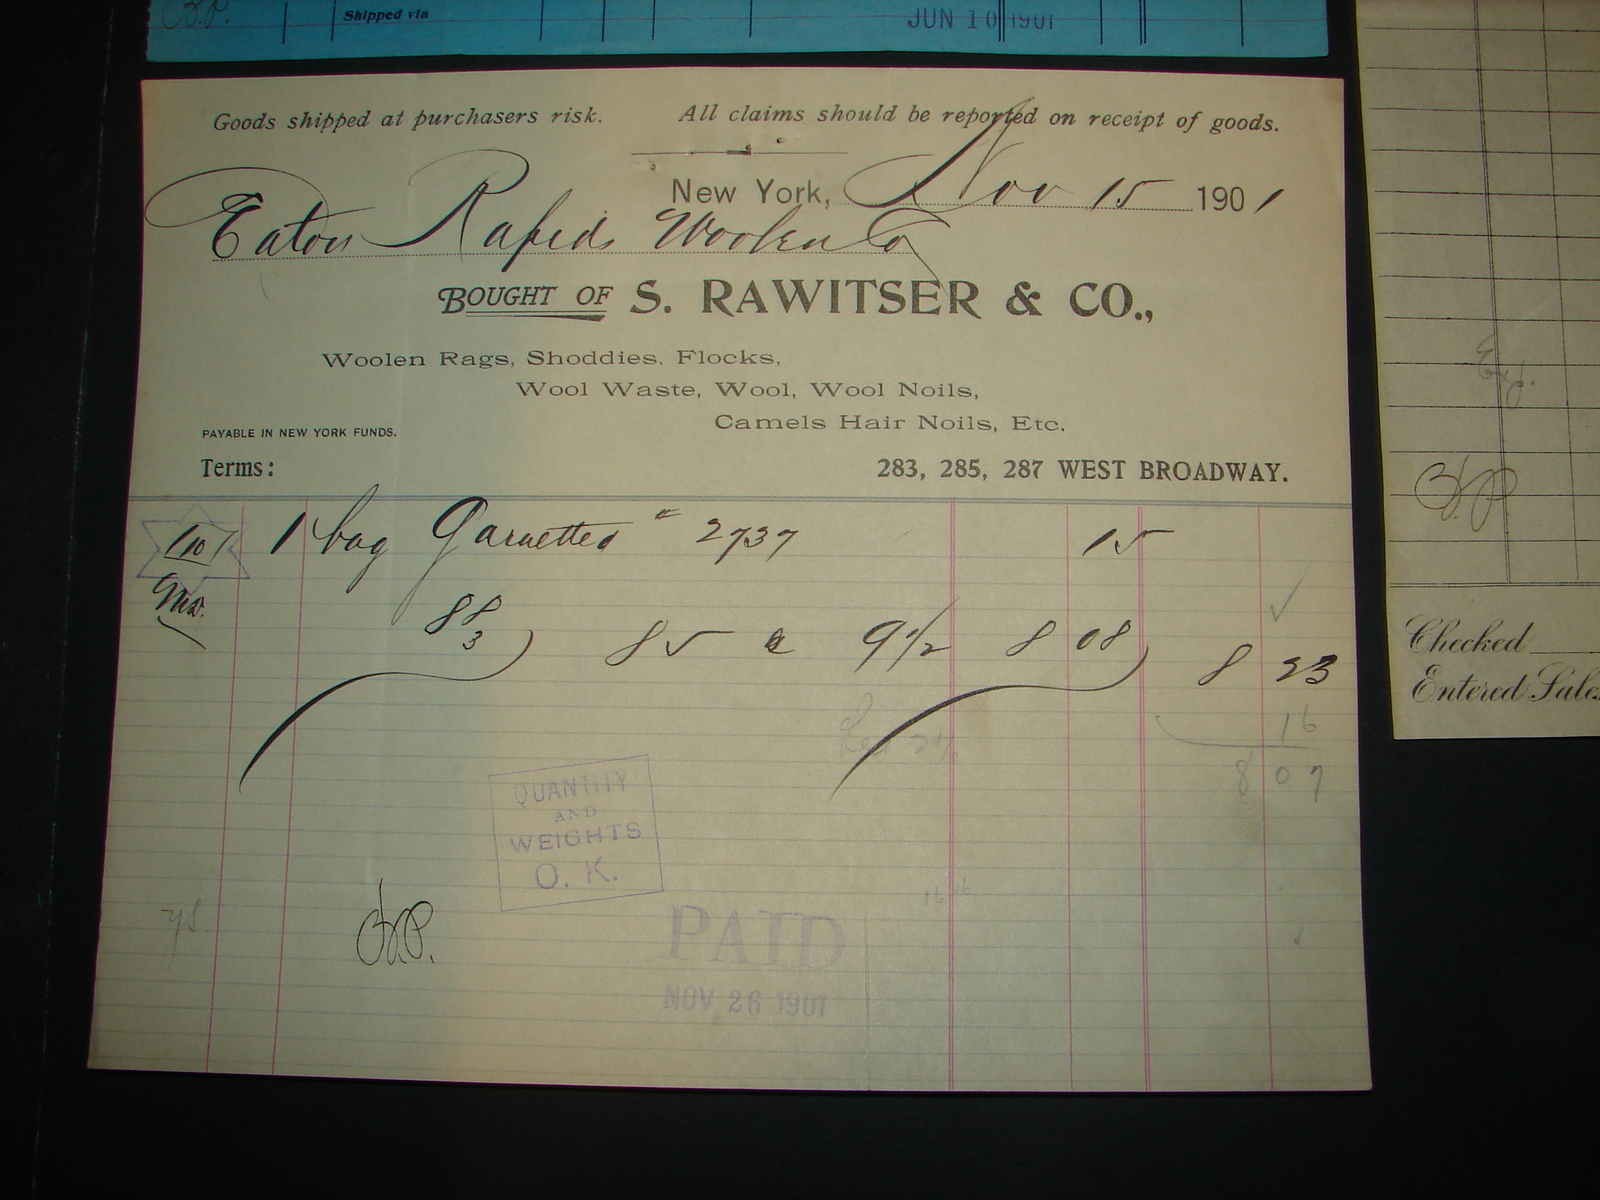 Shipped via
JUN 10 1901
Goods shipped at purchasers risk. All claims should be reported on receipt of goods.
New York, Nov 15 1901
Eaton Rapids Woolen Co
BOUGHT OF S. RAWITSER & CO.,
Woolen Rags, Shoddies, Flocks,
Wool Waste, Wool, Wool Noils,
Camels Hair Noils, Etc.
PAYABLE IN NEW YORK FUNDS.
Terms: 283, 285, 287 WEST BROADWAY.
1 bag Garnetted # 2737 15
88
3 85 @ 9 1/2 8 08 8 23
Less 2% 16
8 07
QUANTITY
AND
WEIGHTS
O. K.
PAID
NOV 26 1901
Checked
Entered Sales